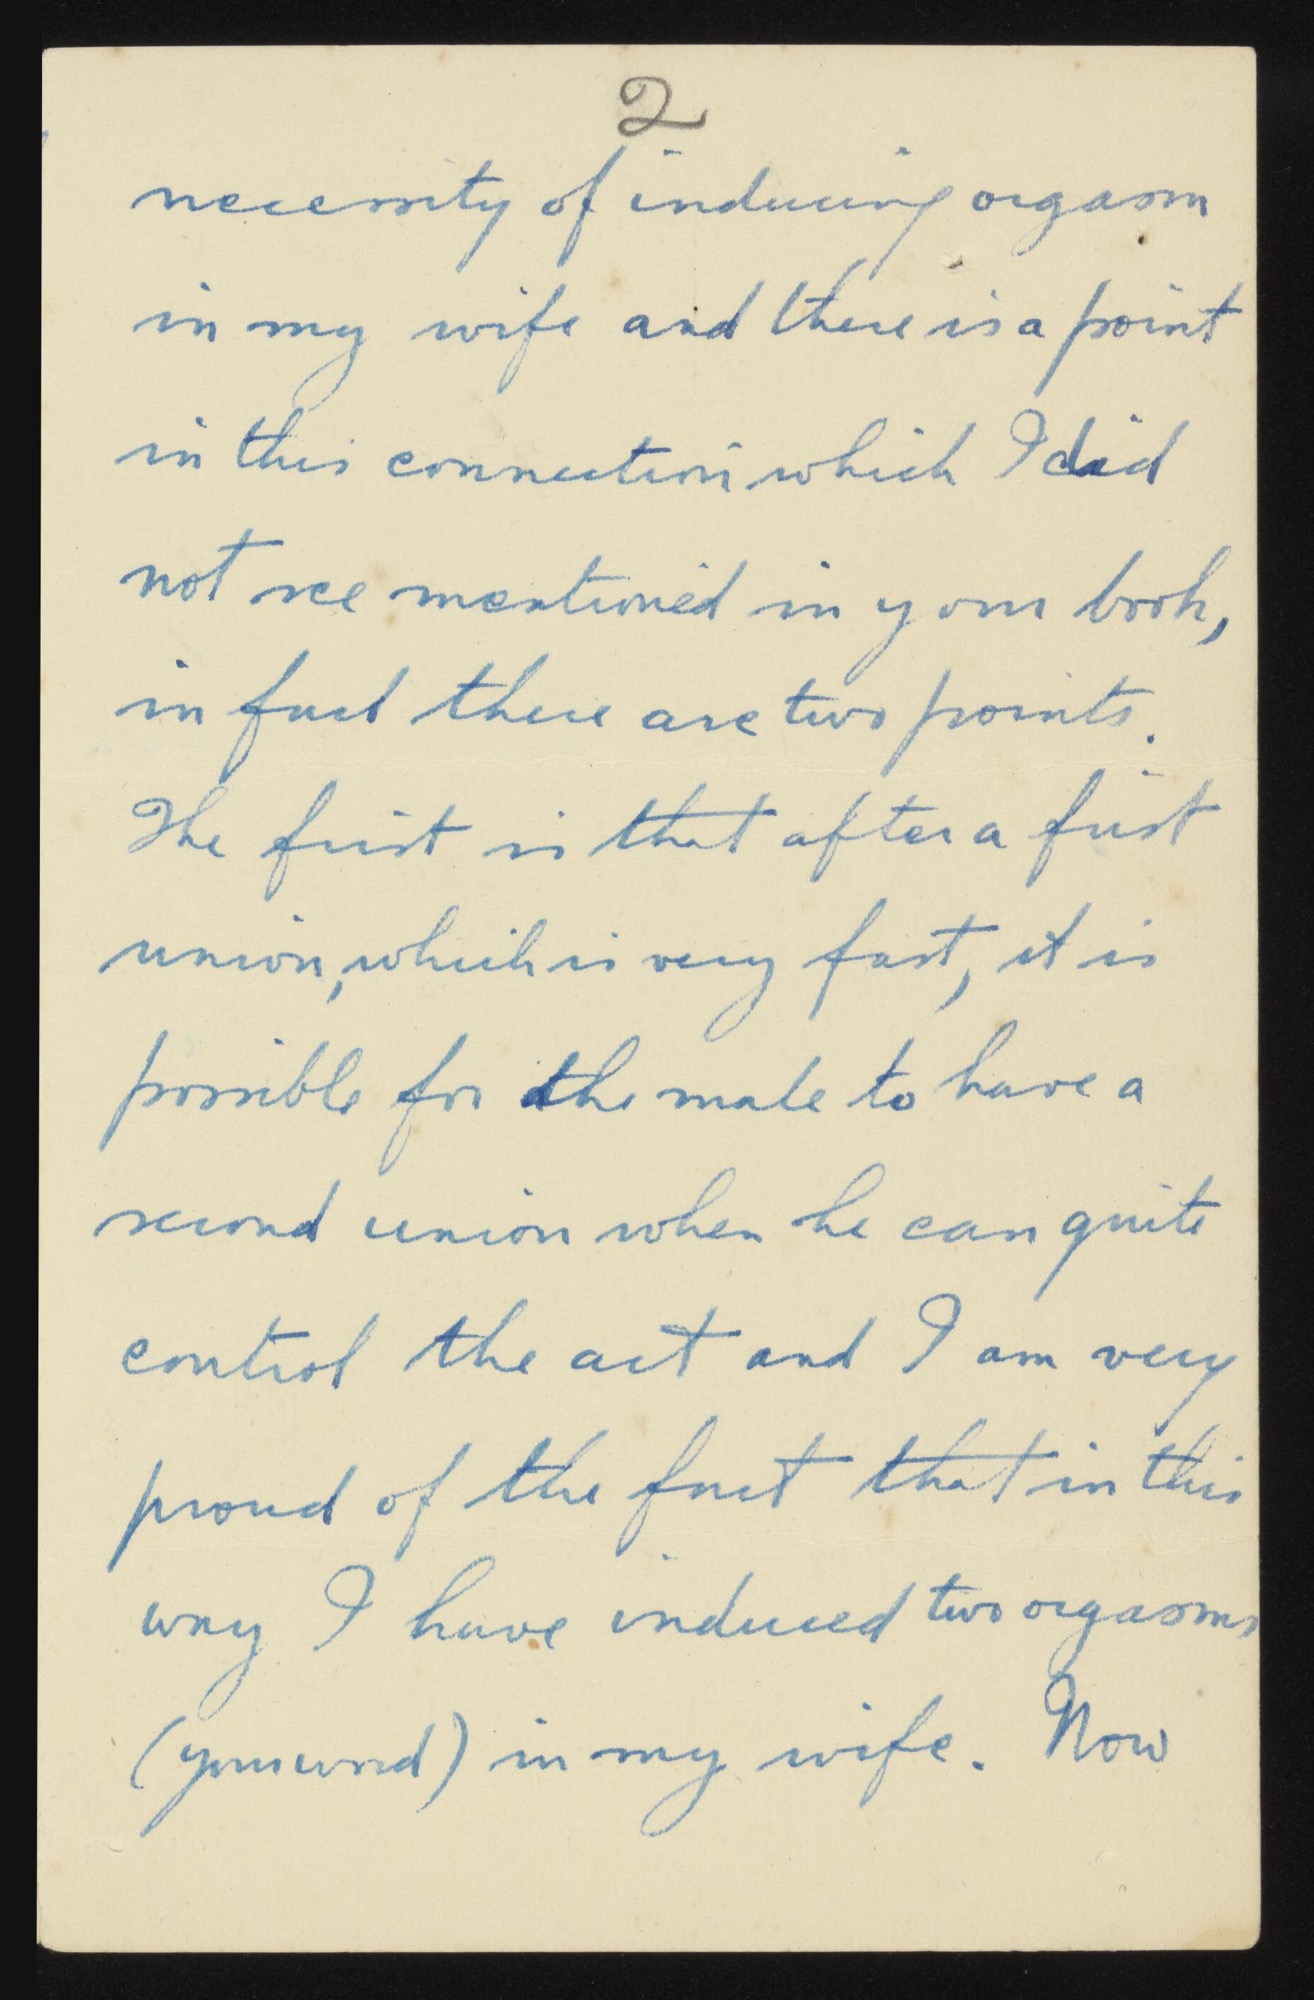 2
necessity of inducing orgasm
in my wife and there is a point
in this connection which I did
not see mentioned in your book,
in fact there are two points.
The first is that after a first
union, which is very fast, it is
possible for the male to have a
second union when he can quite
control the act and I am very
proud of the fact that in this
way I have induced two orgasms
(your word) in my wife. Now